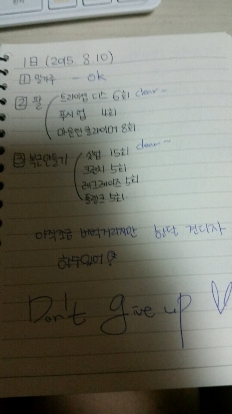 1일 (2015. 8. 10)
① - ok
② 팔 트라이얍 딥스 6회 clear~
푸시업 4회
마운틴 클라이머 8회
③ 복근만들기 싯업 15회 clear~
크런치 5회
레그레이즈 5회
플랭크 5회
아직은 버벅거리지만 한달 견디자
할수있어
Don't give up ♡